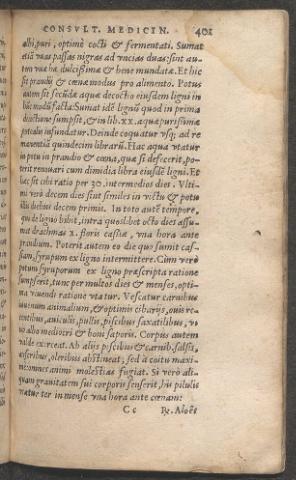 CONSVLT. MEDICIN. 401
albi, puri, optimè cocti & fermentati. Sumat
etiã vuas passas nigras ad vncias duas: sint au-
tem vuæ hæ dulcißimæ & bene mundatæ. Et hic
sit prandij & cœnæ modus pro alimento. Potus
autem sit secũdæ aquæ decoctio eiusdem ligni in
hũc modũ facta: Sumat idẽ lignũ quod in prima
decoctione sumpsit, & in lib. xx. aquæ purissimæ
potculi infundatur. Deinde coquatur vsq; ad re
manentiã quindecim librarũ. Hac aqua vtatur
in potu in prandio & cœna, quæ si defecerit, po-
terit renouari cum dimidia libra eiusdẽ ligni. Et
hæc sit cibi ratio per 30. intermedios dies. Vlti-
mi verò decem dies sint similes in victu & potu
illis diebus decem primis. In toto autẽ tempore,
quo de ligno bibit, intra quoslibet octo dies assu-
mat drachmas x. floris cassiæ, vna hora ante
prandium. Poterit autem eo die quo sumit cas-
siam, syrupum ex ligno intermittere. Cùm verò
potum syruporum ex ligno præscripta ratione
sumpserit, tunc per multos dies & menses, opti-
ma viuendi ratione vtatur. Vescatur carnibus
iuuenum animalium, & optimis cibarijs, ouis re-
centibus, auiculis, pullis, piscibus saxatilibus, vi
no albo mediocri & boni saporis. Corpus autem
valde exerceat. Ab alijs piscibus & carnib. salsis,
acribus, oleribus abstineat; sed à coitu maxi-
mè omnes animi molestias fugiat. Si verò ali-
quam grauitatem sui corporis senserit, his pilulis
vtatur ter in mense vna hora ante cœnam:
Cc ℞. Aloës